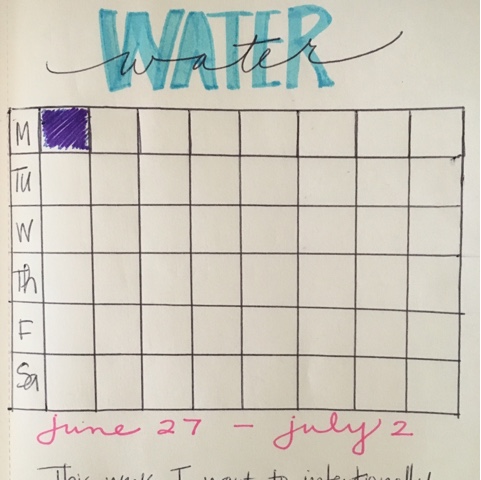 WATER
water
M
Tu
W
Th
F
Sa
june 27 - july 2
This week I want to intentionally